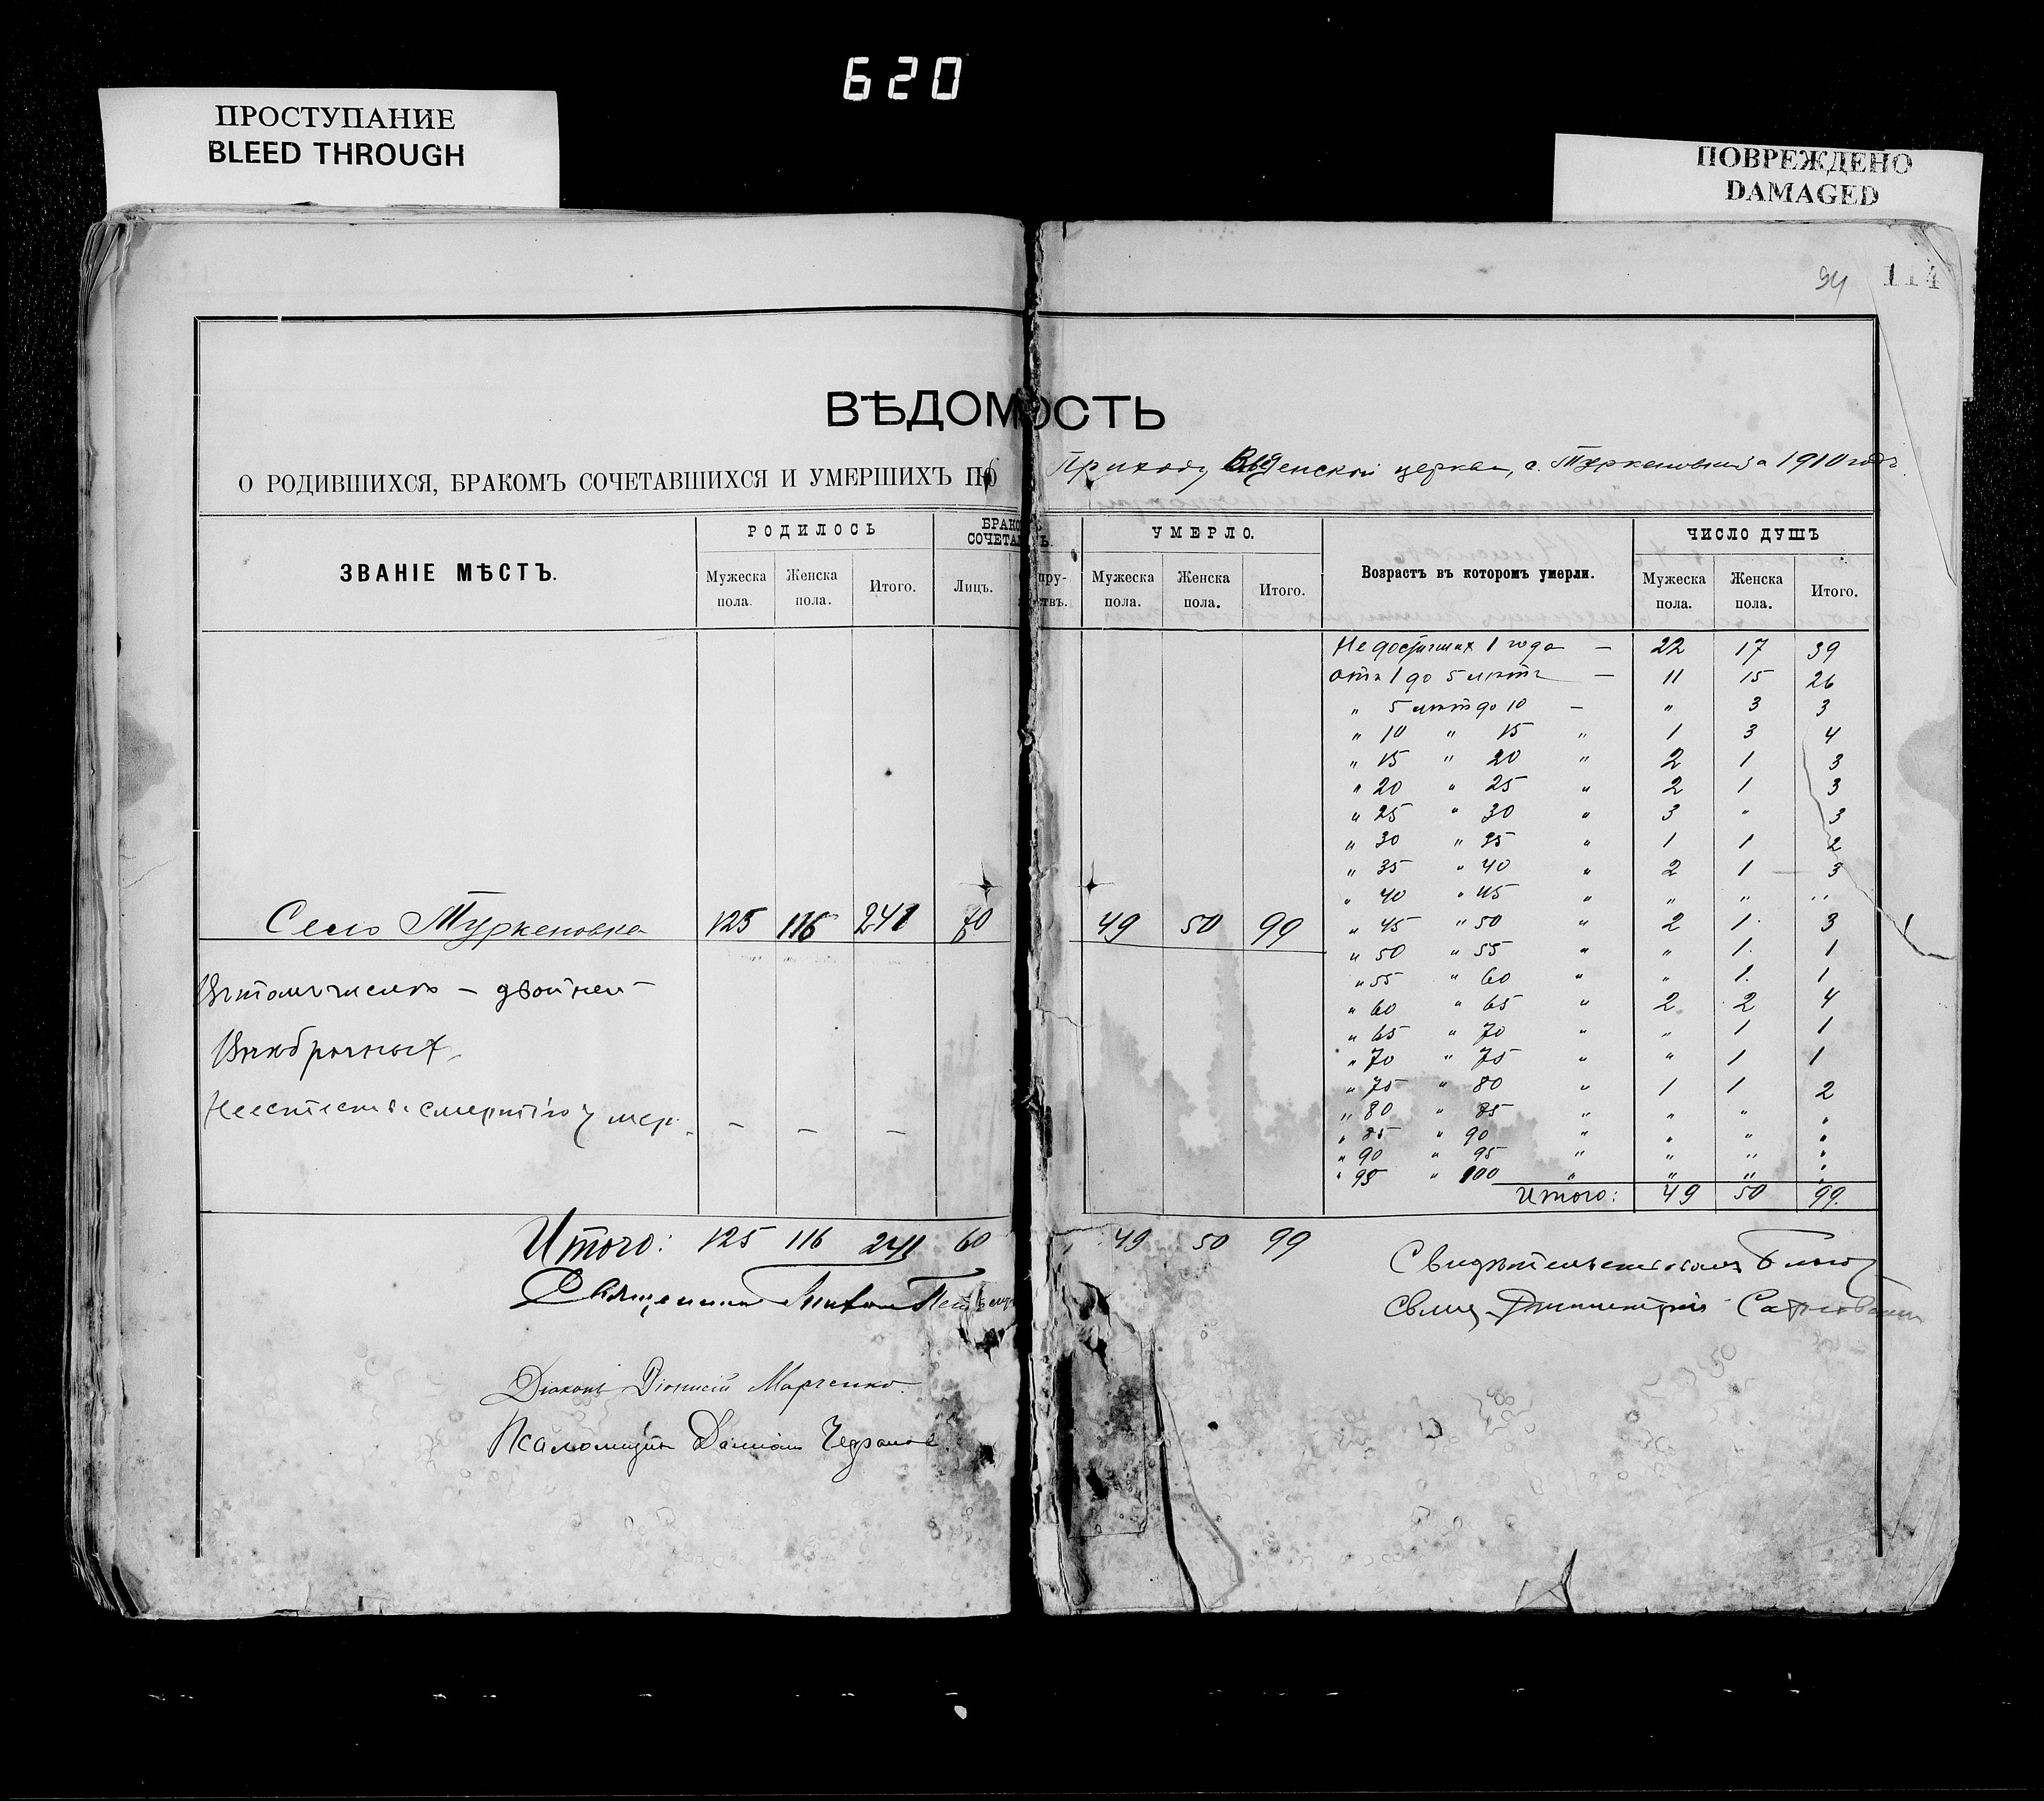 620
ПРОСТУПАНИЕ
BLEED THROUGH
ПОВРЕЖДЕНО
DAMAGED
94 114
ВѢДОМОСТЬ
О РОДИВШИХСЯ, БРАКОМЪ СОЧЕТАВШИХСЯ И УМЕРШИХЪ ПО Приходу церкви, с. Туркеновки за 1910 годъ
ЗВАНІЕ МѢСТЪ. РОДИЛОСЬ УМЕРЛО. Возрастъ въ которомъ умерли. ЧИСЛО ДУШЪ
Мужеска пола. Женска пола. Итого. Лицъ. Мужеска пола. Женска пола. Итого. Мужеска пола. Женска пола. Итого.
Не достигших 1 года — 22 17 39
отъ 1 до 5 лѣтъ — 11 15 26
" 5 лѣтъ до 10 — " 3 3
" 10 " 15 " 1 3 4
" 15 " 20 " 2 1 3
" 20 " 25 " 2 1 3
" 25 " 30 " 3 " 3
" 30 " 35 " 1 1 2
" 35 " 40 " 2 1 3
" 40 " 45 " " " "
Село Туркеновка 125 116 241 60 49 50 99
" 45 " 50 " 2 1. 3
" 50 " 55 " " 1. 1
" 55 " 60 " " 1. 1
" 60 " 65 " 2 2 4
" 65 " 70 " " 1 1
" 70 " 75 " " 1 1
" 75 " 80 " 1 1 2
" 80 " 85 " " " "
" 85 " 90 " " " "
" 90 " 95 " " " "
" 95 " 100 " " " "
Итого: 49 50 99.
Въ томъ числѣ — двойней —
Внѣбрачныхъ
смертію умер. — — —
Итого: 125 116 241 60 49 50 99
Священникъ
Діаконъ Діонисій Марченко.
Псаломщикъ Даміанъ
Свидѣтельствовалъ Благоч.
свящ. Димитрій